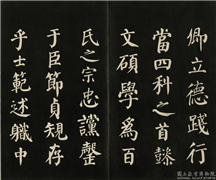 卿立德踐行
當四科之首懿
文碩學為百
氏之宗忠讜罄
于臣節貞規存
乎士範述職中
國立故宮博物院